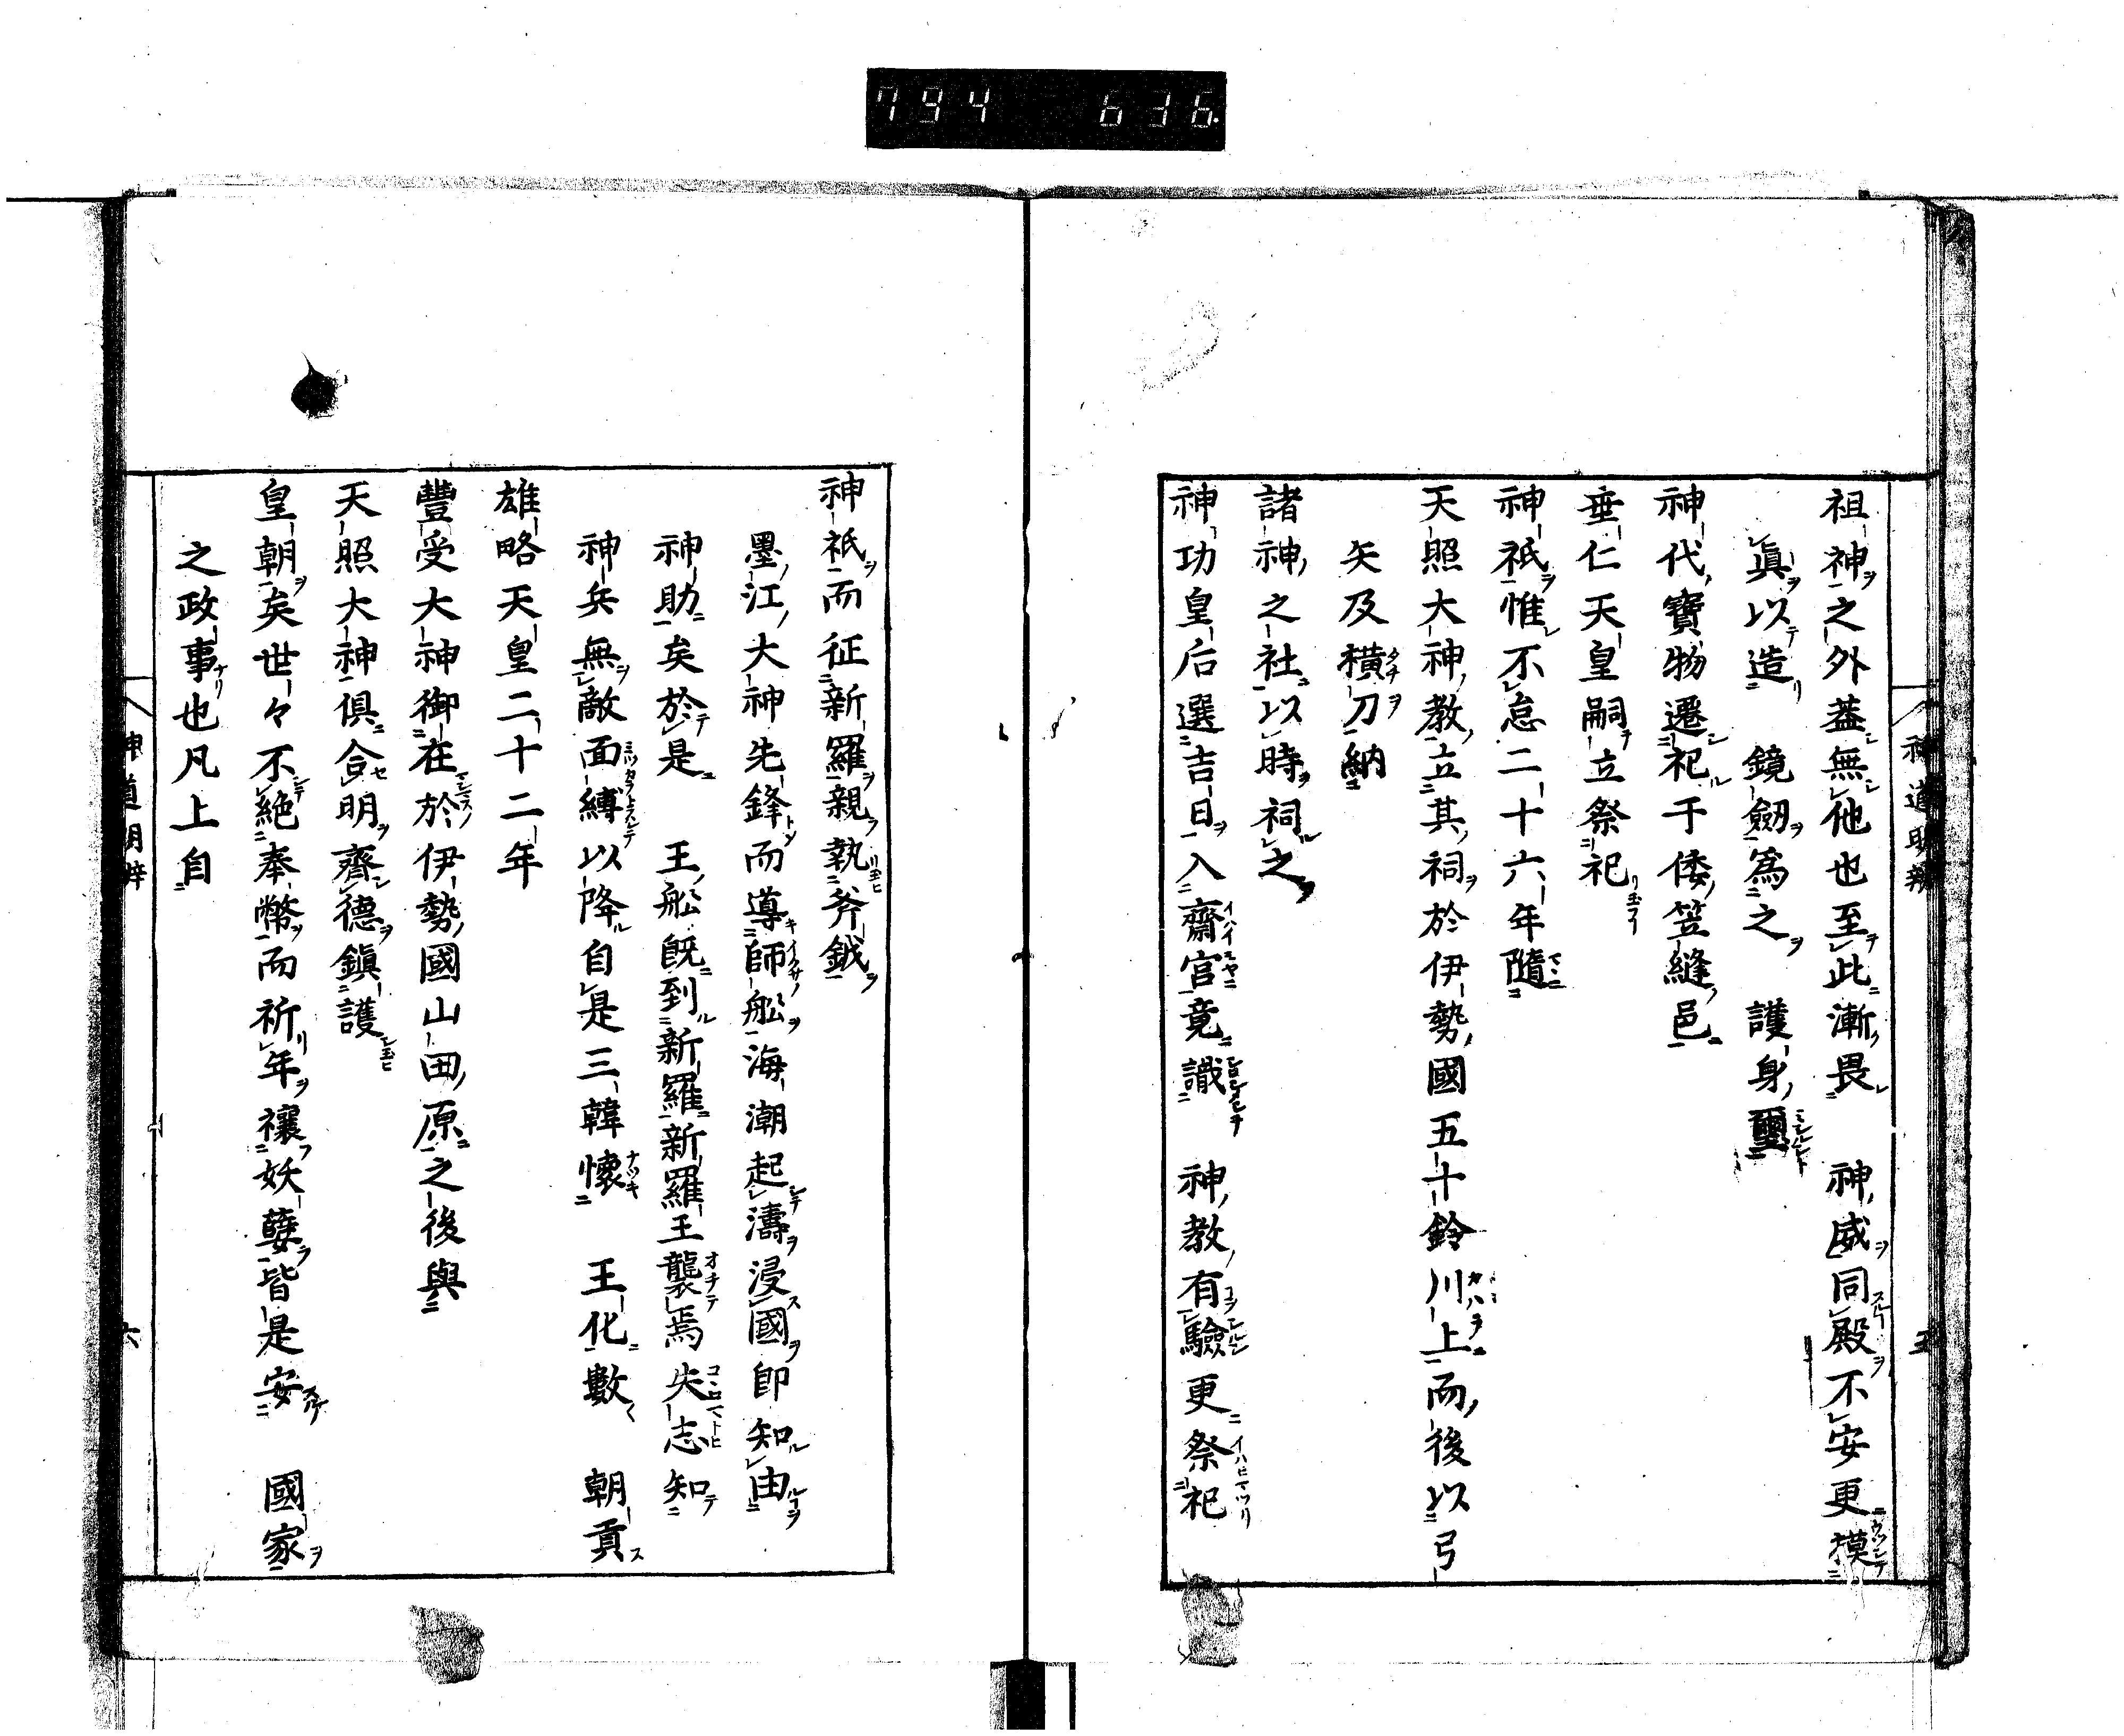 794 636.
神道明辨
五
祖神之外蓋無他也至此漸畏　神威同殿不安更摸
眞以造　鏡劔為之　護身璽
神代寶物遷祀于倭笠縫邑
垂仁天皇嗣立祭祀
神祇惟不怠二十六年隨
天照大神教立其祠於伊勢國五十鈴川上而後以弓
矢及横刀納
諸神之社以時祠之
神功皇后選吉日入齋宮竟識　神教有驗更祭祀
神祇而征新羅親執斧鉞
墨江大神先鋒而導師船海潮起濤浸國即知由
神助矣於是　王船既到新羅新羅王襲焉失志知
神兵無敵面縛以降自是三韓懷　王化數　朝貢
雄略天皇二十二年
豐受大神御在於伊勢國山田原之後與
天照大神俱合明齊德鎭護
皇朝矣世々不絶奉幣而祈年禳妖孽皆是安　國家
之政事也凡上自
神道明辨
六